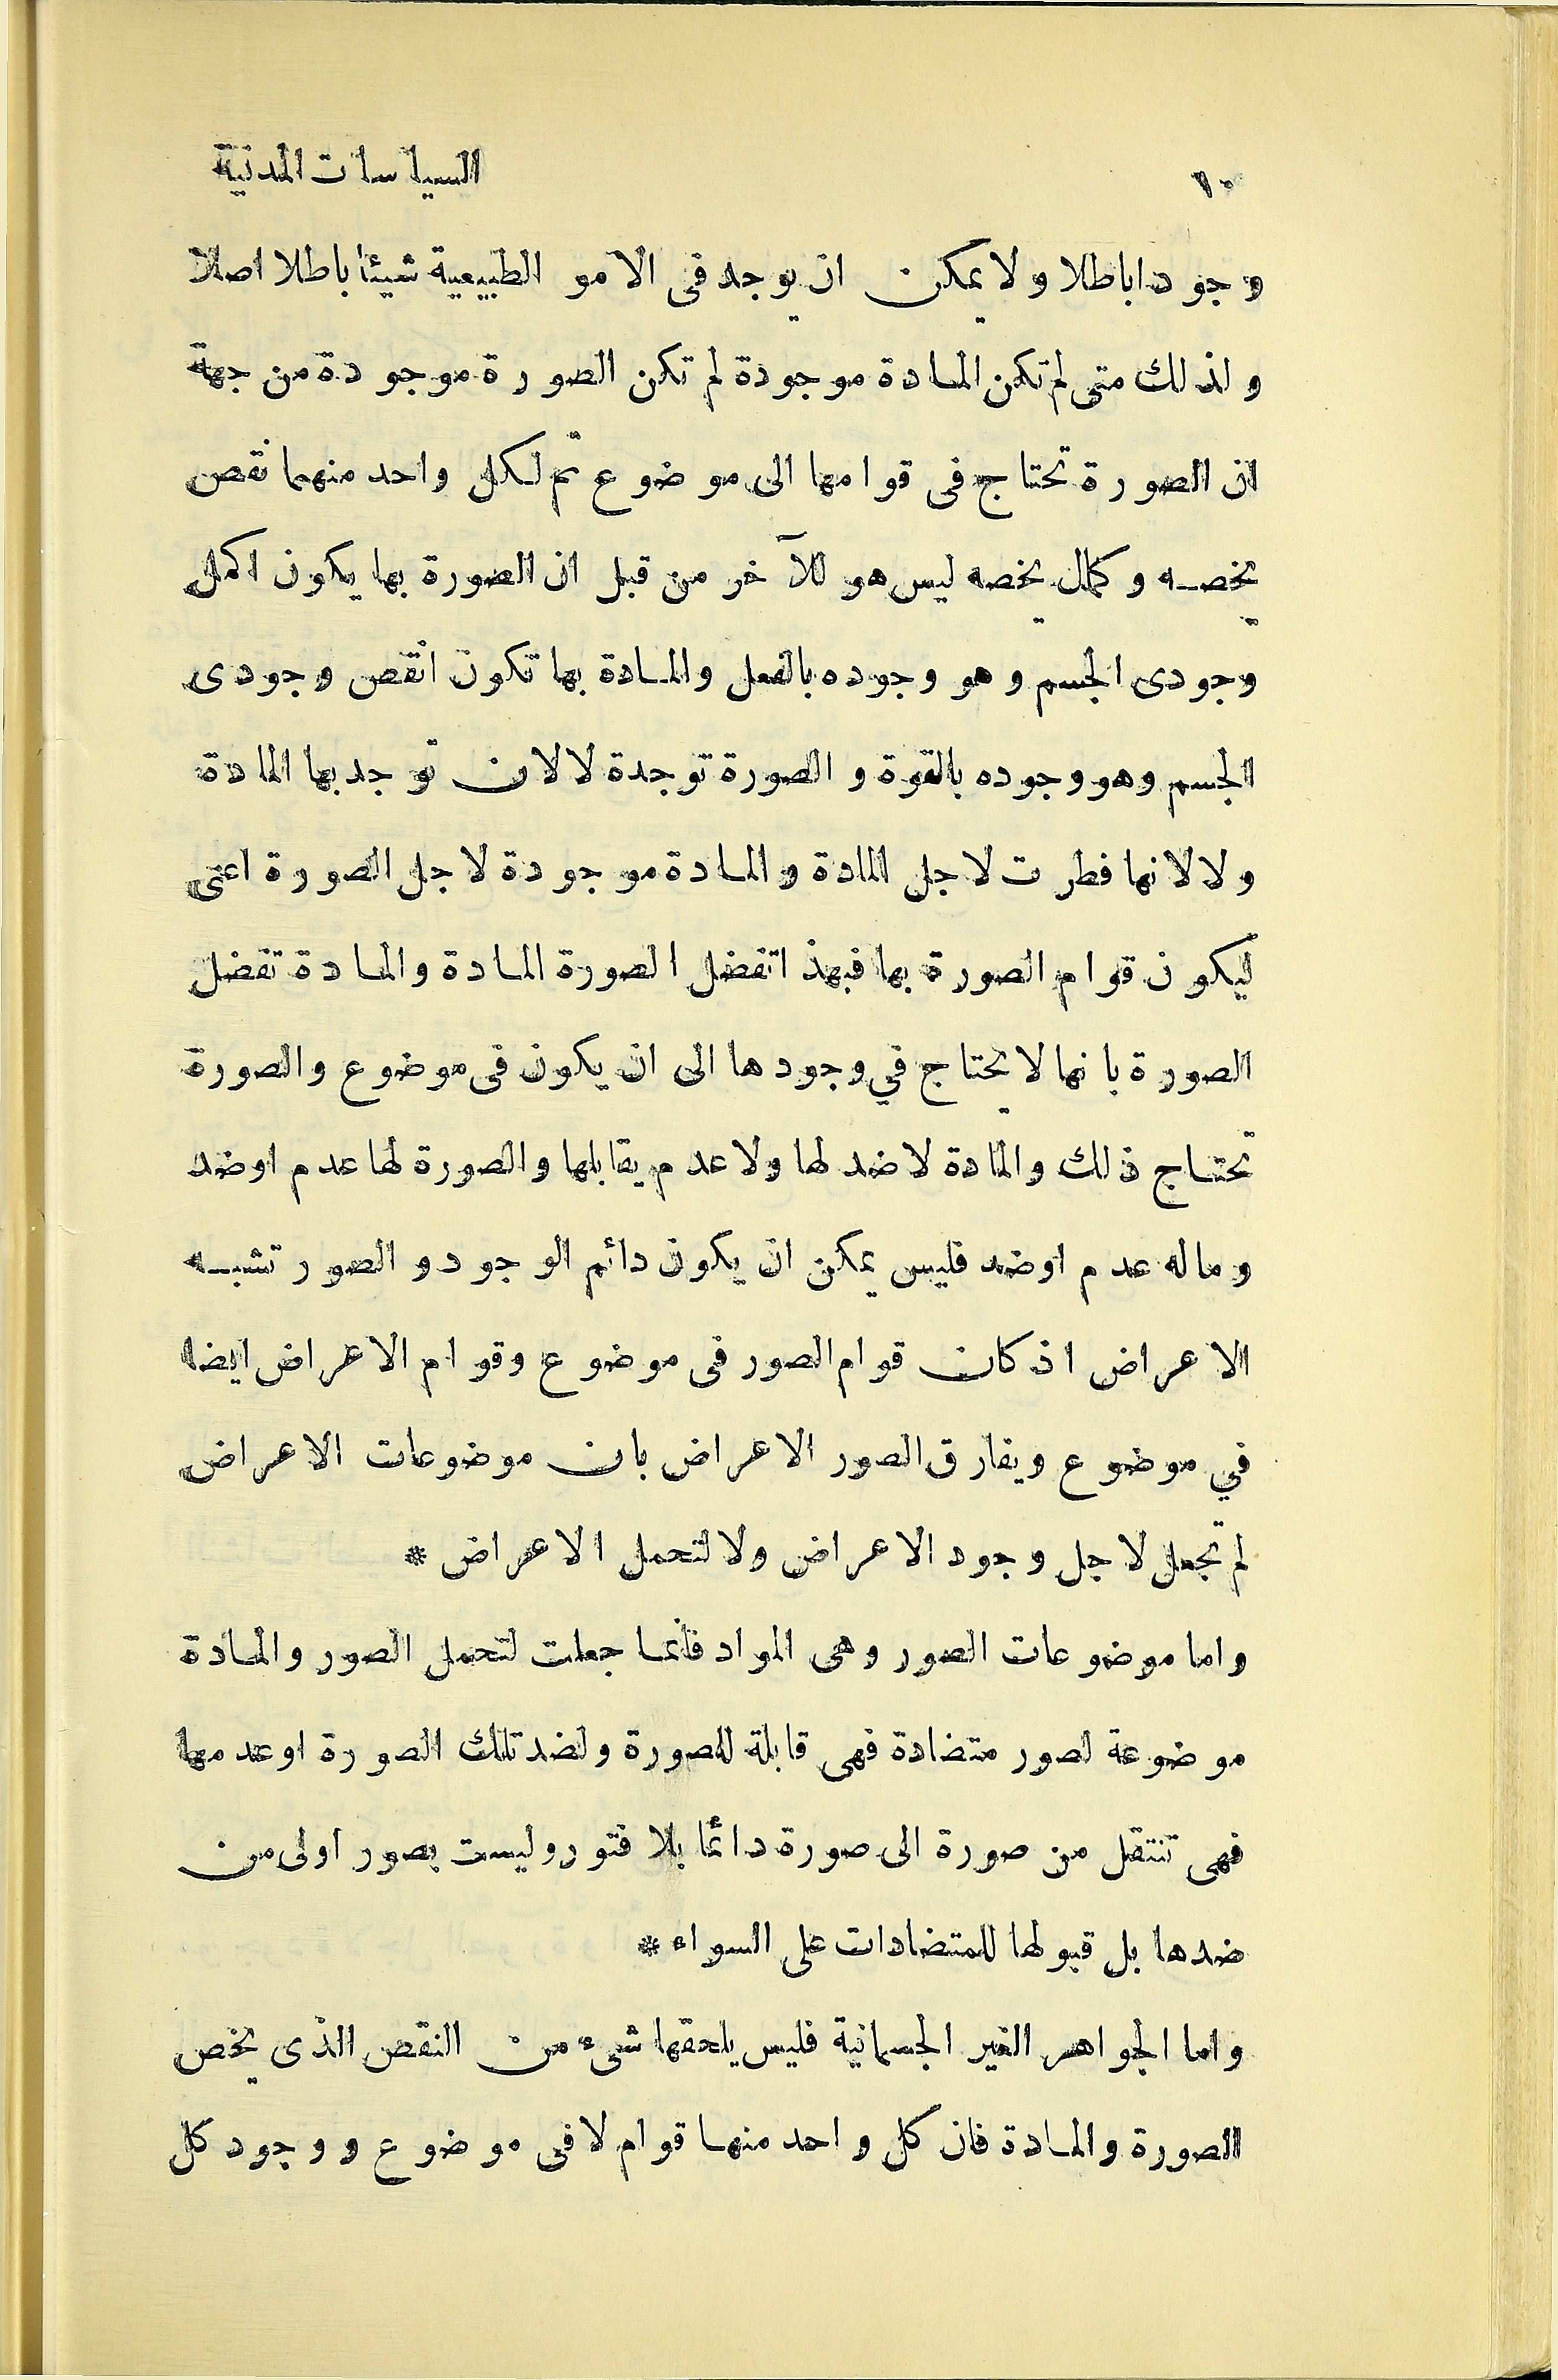 ١٠ السياسات المدنية
وجودا باطلا ولا يمكن ان يوجد فى الامو الطبيعية شيئا باطلا اصلا
ولذلك متى لم تكن المادة موجودة لم تكن الصورة موجودة من جهة
ان الصورة تحتاج فى قوامها الى موضوع ثم لكل واحد منهما نقص
يخصه وكمال يخصه ليس هو للآخر من قبل ان الصورة بها يكون اكمل
وجودى الجسم وهو وجوده بالفعل والمادة بها تكون انقص وجودى
الجسم وهو وجوده بالقوة والصورة توجدة لا لان توجد بها المادة
ولا لانها فطرت لاجل المادة والمادة موجودة لاجل الصورة اعنى
ليكون قوام الصورة بها فبهذا تفضل الصورة المادة والمادة تفضل
الصورة بانها لا يحتاج في وجودها الى ان يكون فى موضوع والصورة
تحتاج ذلك والمادة لا ضد لها ولا عدم يقابلها والصورة لها عدم اوضد
وماله عدم اوضد فليس يمكن ان يكون دائم الوجود والصور تشبه
الاعراض اذ كان قوام الصور فى موضوع وقوام الاعراض ايضا
في موضوع ويفارق الصور الاعراض بان موضوعات الاعراض
لم تجعل لاجل وجود الاعراض ولا لتحمل الاعراض *
واما موضوعات الصور وهى المواد فانما جعلت لتحمل الصور والمادة
موضوعة لصور متضادة فهى قابلة للصورة ولضد تلك الصورة اوعدمها
فهى تنتقل من صورة الى صورة دائما بلا فتور وليست بصور اولى من
ضدها بل قبولها للمتضادات على السواء *
واما الجواهر الغير الجسمانية فليس يلحقها شىء من النقص الذى يخص
الصورة والمادة فان كل واحد منها قوام لا فى موضوع ووجود كل